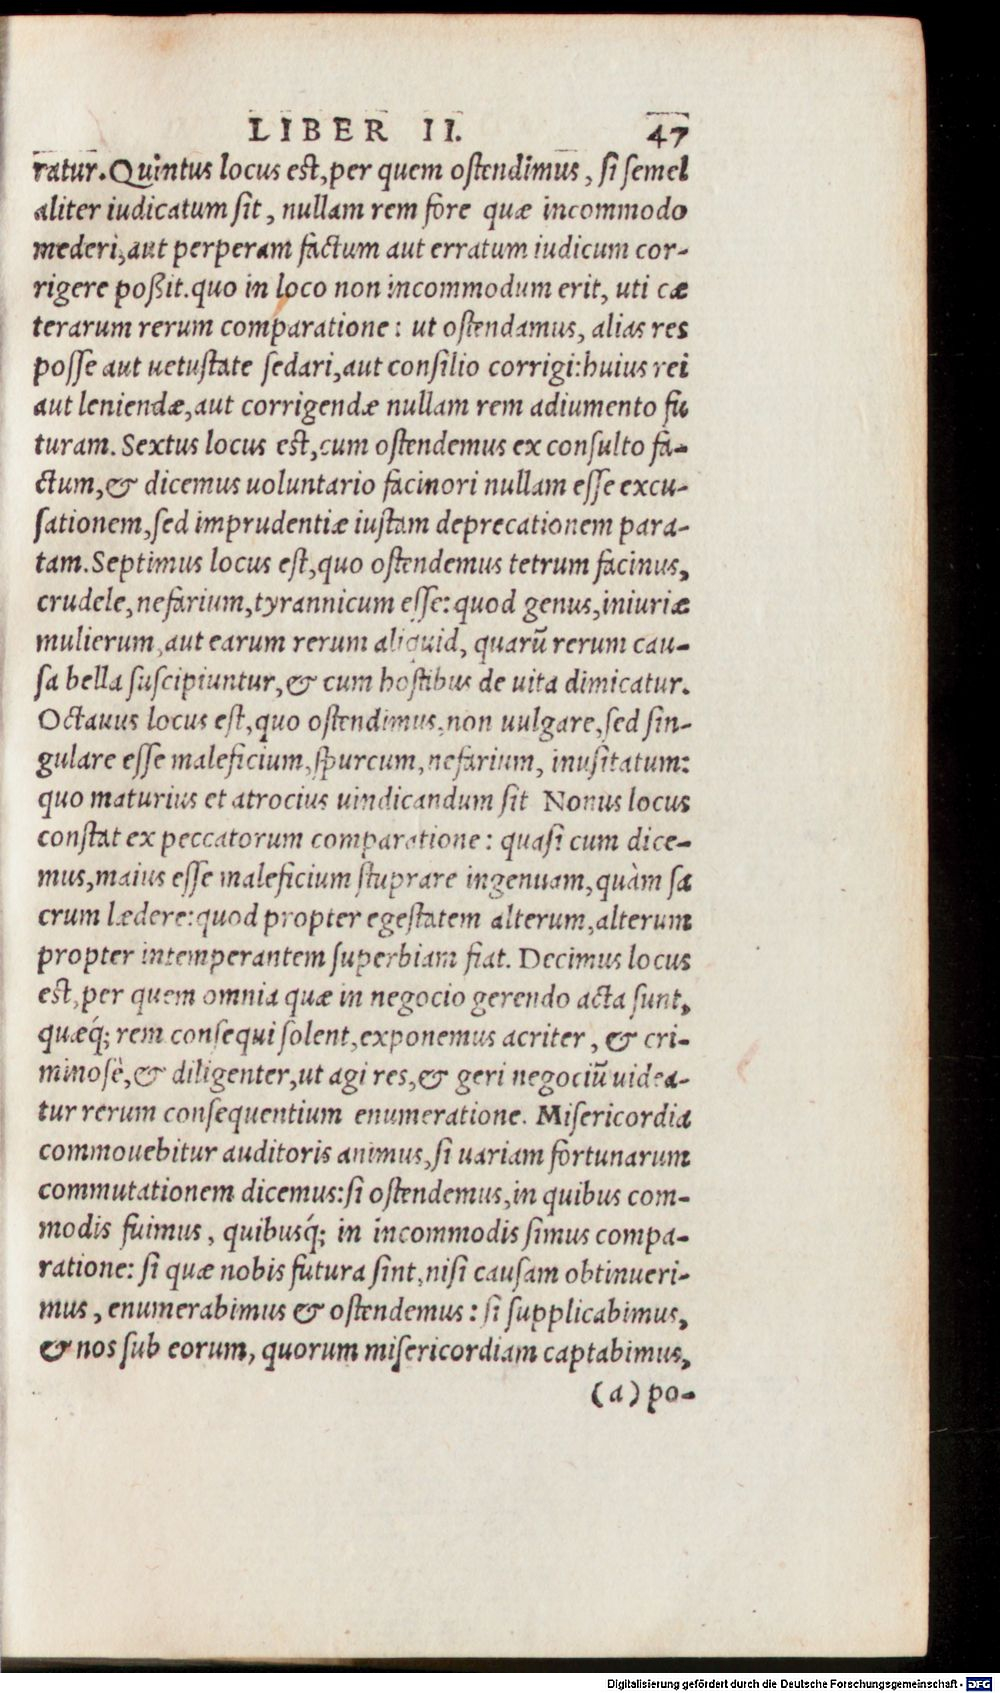 LIBER II. 47
ratur. Quintus locus est, per quem ostendimus, si semel
aliter iudicatum sit, nullam rem fore quæ incommodo
mederi, aut perperam factum aut erratum iudicum cor-
rigere poßit. quo in loco non incommodum erit, uti cæ
terarum rerum comparatione: ut ostendamus, alias res
posse aut uetustate sedari, aut consilio corrigi: huius rei
aut leniendæ, aut corrigendæ nullam rem adiumento fu
turam. Sextus locus est, cum ostendemus ex consulto fa-
ctum, & dicemus uoluntario facinori nullam esse excu-
sationem, sed imprudentiæ iustam deprecationem para-
tam. Septimus locus est, quo ostendemus tetrum facinus,
crudele, nefarium, tyrannicum esse: quod genus, iniuriæ
mulierum, aut earum rerum aliquid, quarū rerum cau-
sa bella suscipiuntur, & cum hostibus de uita dimicatur.
Octauus locus est, quo ostendimus, non uulgare, sed sin-
gulare esse maleficium, spurcum, nefarium, inusitatum:
quo maturius et atrocius uindicandum sit Nonus locus
constat ex peccatorum comparatione: quasi cum dice-
mus, maius esse maleficium stuprare ingenuam, quàm sa
crum lædere: quod propter egestatem alterum, alterum
propter intemperantem superbiam fiat. Decimus locus
est, per quem omnia quæ in negocio gerendo acta sunt,
quæq́; rem consequi solent, exponemus acriter, & cri-
minosè, & diligenter, ut agi res, & geri negociū uidea-
tur rerum consequentium enumeratione. Misericordia
commouebitur auditoris animus, si uariam fortunarum
commutationem dicemus: si ostendemus, in quibus com-
modis fuimus, quibusq́; in incommodis simus compa-
ratione: si quæ nobis futura sint, nisi causam obtinueri-
mus, enumerabimus & ostendemus: si supplicabimus,
& nos sub eorum, quorum misericordiam captabimus,
(a) po-
Digitalisierung gefördert durch die Deutsche Forschungsgemeinschaft - DFG